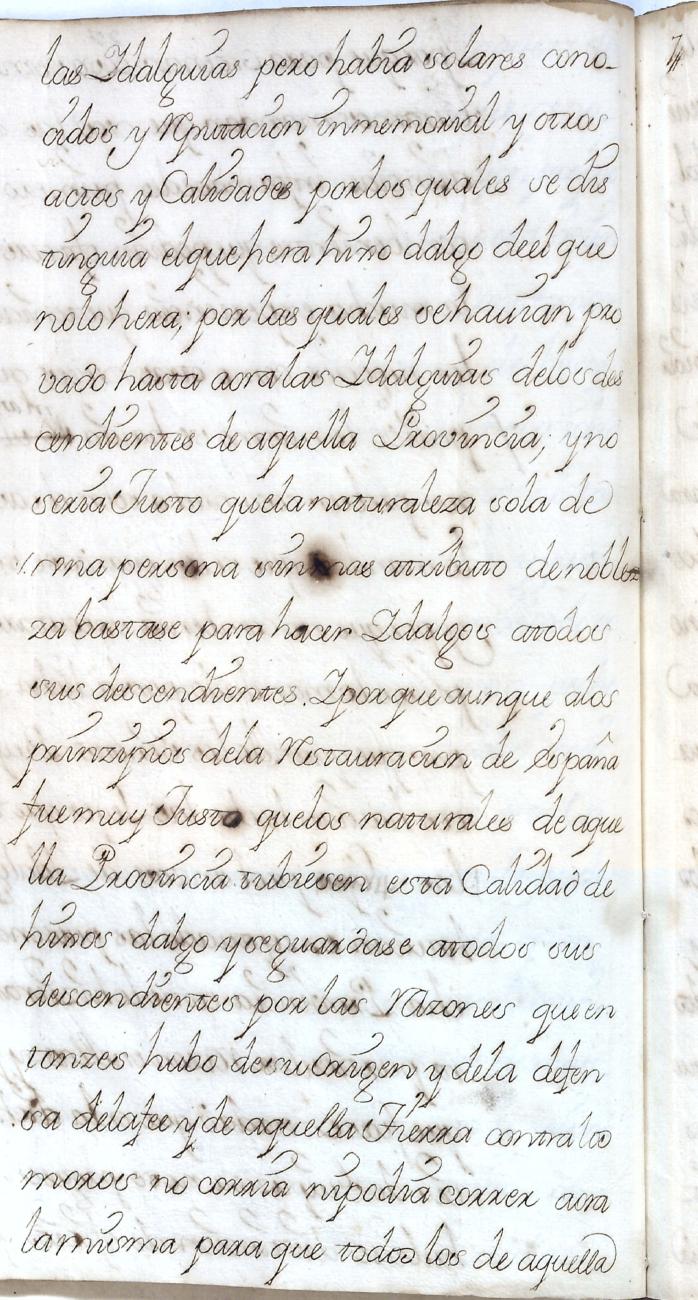 las Idalguias pero habia solares cono-
cidos y Reputacion inmemorial y otros
actos y Calidades por los quales se dis
tinguia el que hera hixo dalgo de el que
no lo hera; por las quales se hauian pro
vado hasta aora las Idalguias de los des
cendientes de aquella Provincia; y no
seria Justo que la naturaleza sola de
una persona sin mas atributo de noble
za bastase para hacer Idalgos a todos
sus descendientes. Y porque aunque a los
prinzipios de la Restauracion de España
fue muy Justo que los naturales de aque
lla Provincia tubiesen esta Calidad de
hixos dalgo y se guardase a todos sus
descendientes por las Razones que en
tonzes hubo de su Origen y de la defen
sa de la fee y de aquella Tierra contra los
moros no corria ni podia correr aora
la misma para que todos los de aquella